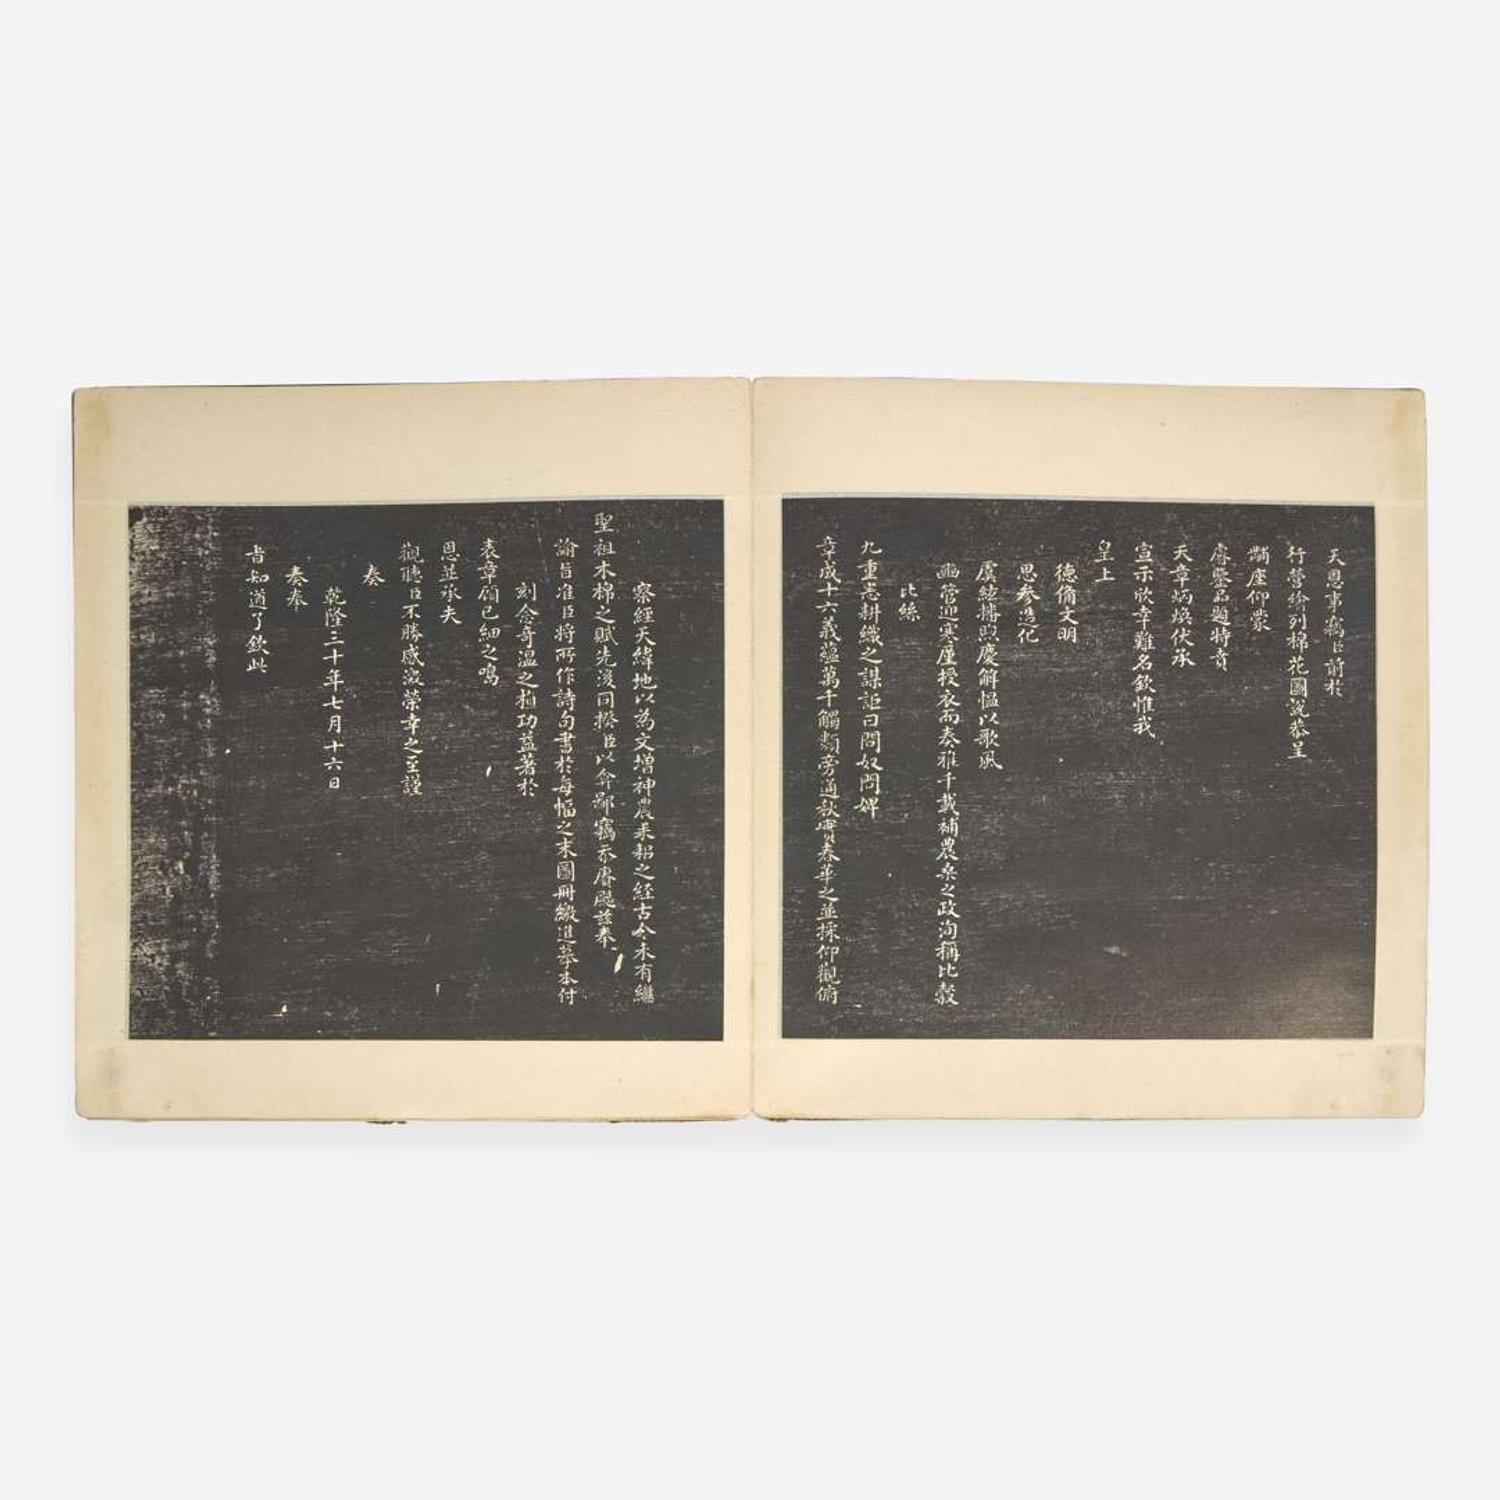 天恩事竊臣前於
行營繪列棉花圖說恭呈
黼座仰蒙
睿鑒品題特賁
天章炳煥伏承
宣示欣幸難名欽惟我
皇上
德備文明
思參造化
虞絃播照慶解慍以歌風
豳籥迎寒厪授衣而奏雅千載補農桑之政洵稱比穀
比絲
九重志耕織之謀詎曰問奴問婢
章成十六義蘊萬千觸類旁通秋實春華之並採仰觀俯
察經天緯地以為文增神農耒耜之經古今未有繼
聖祖木棉之賦先後同揆臣以弇鄙竊示賡颺茲奉
諭旨准臣將所作詩句書於每幅之末圖冊繳進摹本付
刻念奇溫之植功益著於
表章頎已細之鳴
恩並承夫
觀聽臣不勝感激榮幸之至謹
奏
乾隆三十年七月十六日
奏奉
旨知道了欽此